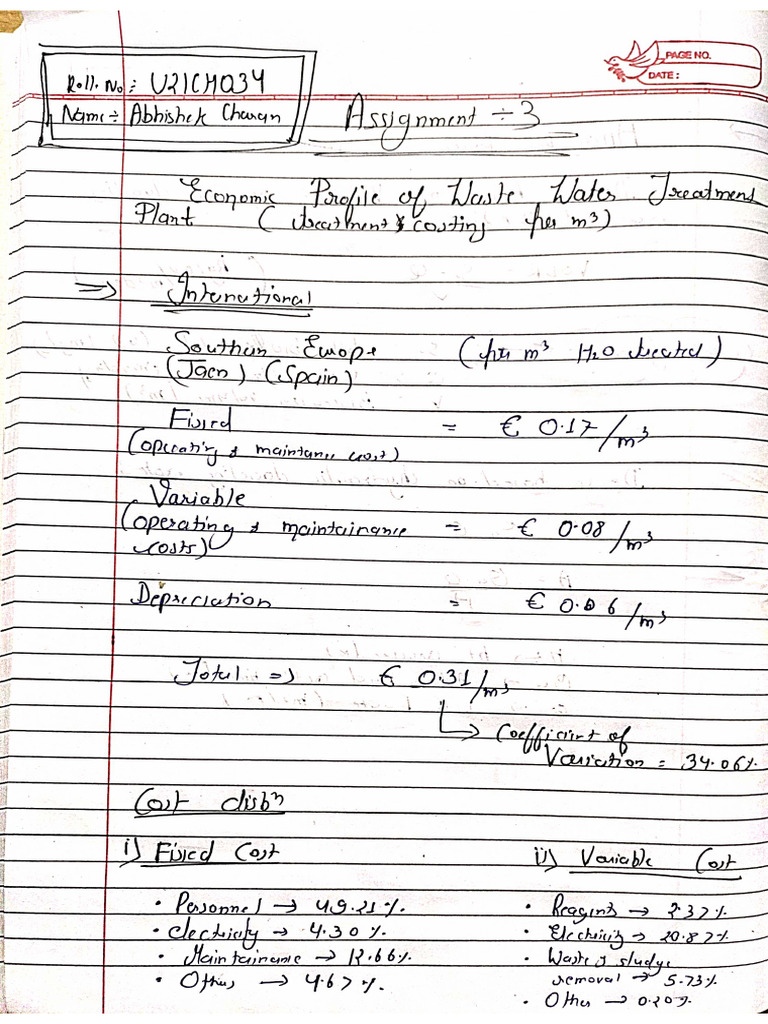 PAGE NO.
DATE:
Roll. No: U21CH034
Name ÷ Abhishek Charan
Assignment ÷ 3
Economic Profile of Waste Water Treatment
Plant (treatment & costing per m³)
⇒ International
Southern Europe (per m³ H2O treated)
(Jaen) (Spain)
Fixed = € 0.17/m³
(operating & maintanance cost)
Variable
(operating & maintainance = € 0.08/m³
costs)
Depreciation = € 0.06/m³
Total ⇒ € 0.31/m³
↳ Coefficient of
Variation = 34.06%
Cost disbⁿ
i) Fixed Cost ii) Variable Cost
• Personnel → 49.21%. • Reagents → 2.37%
• electricity → 4.30%. • Electricity → 20.87%
• Maintainance → 12.66% • Waste & sludge
• Others → 4.67%. removal → 5.73%
• Other → 0.20%